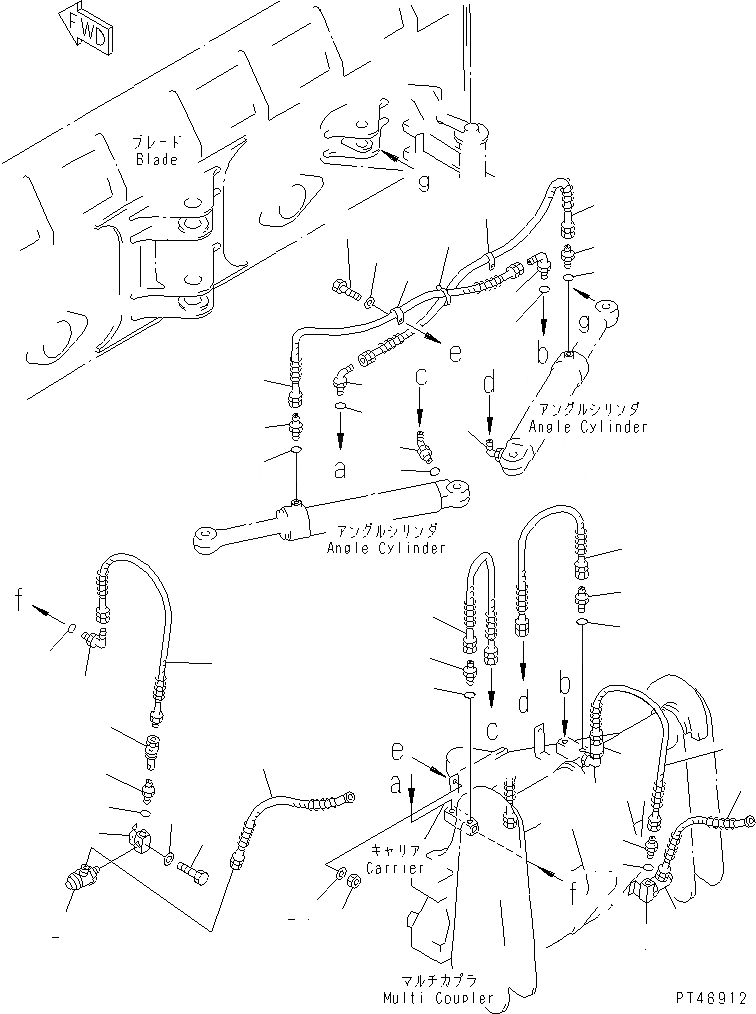 FWD
ブレード
Blade
g
e
b
g
c
d
a
アングルシリンダ
Angle Cylinder
アングルシリンダ
Angle Cylinder
f
c
d
b
e
a
キャリア
Carrier
f
マルチカプラ
Multi Coupler
PT46912